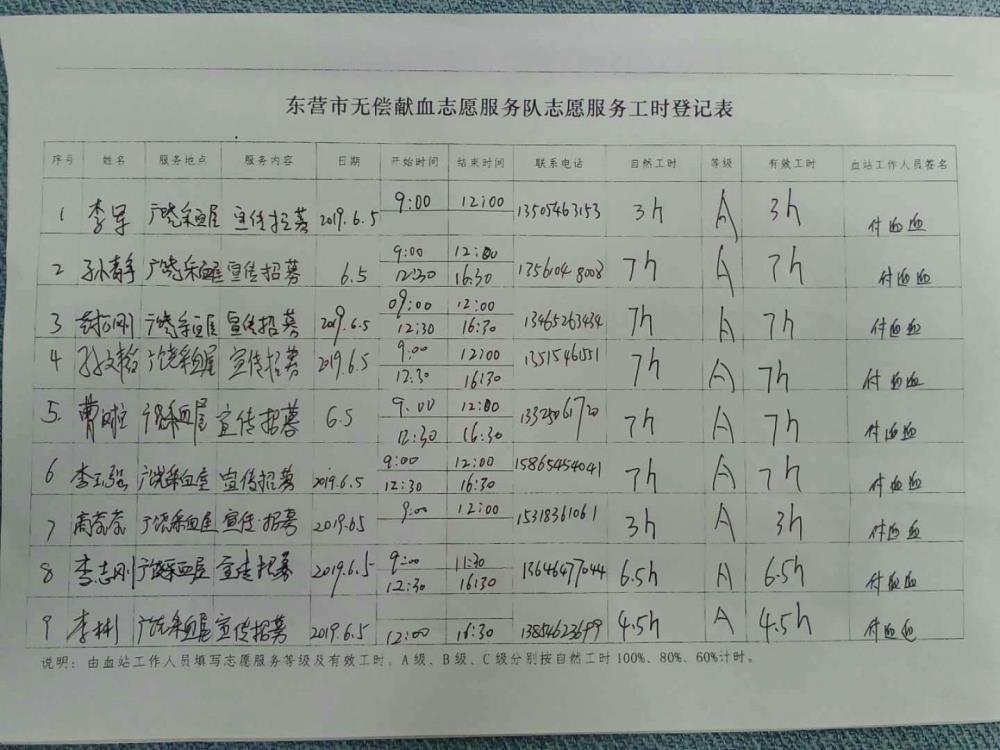 东营市无偿献血志愿服务队志愿服务工时登记表
序号 姓名 服务地点 服务内容 日期 开始时间 结束时间 联系电话 自然工时 等级 有效工时 血站工作人员签名
1 李军 广饶采血屋 宣传招募 2019.6.5 9:00 12:00 13505463153 3h A 3h
2 孙青 广饶采血屋 宣传招募 6.5 9:00 12:00 1356104 8008 7h A 7h
12:30 16:30
3 刚 广饶采血屋 宣传招募 2019.6.5 09:00 12:00 13465263434 7h A 7h
12:30 16:30
4 孙文 广饶采血屋 宣传招募 2019.6.5 9:00 12:00 1351546551 7h A 7h
12:30 16:30
5. 曹 广饶采血屋 宣传招募 6.5 9.00 12:00 13325061720 7h A 7h
12:30 16:30
6 李玉强 广饶采血室 宣传招募 2019.6.5 9:00 12:00 15865454041 7h A 7h
12:30 16:30
7 商 广饶采血屋 宣传招募 2019.6.5 9:00 12:00 15318361061 3h A 3h
8 李志刚 广饶采血屋 宣传招募 2019.6.5 9:00 11:30 13646477044 6.5h A 6.5h
12:30 16:30
9 李彬 广饶采血屋 宣传招募 2019.6.5 12:00 16:30 13854623699 4.5h A 4.5h
说明：由血站工作人员填写志愿服务等级及有效工时。A级、B级、C级分别按自然工时100%、80%、60%计时。